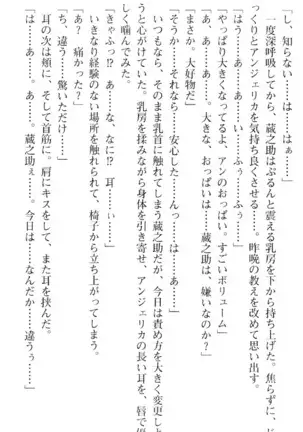 「し、知らない……はぁ……はぁ……」
一度深呼吸してから、蔵之助はぷるんと震える乳房を下から持ち上げた。焦らずに、じ
っくりとアンジェリカを気持ち良くさせる……。昨晩の教えを改めて思い出す。
「はぁ……うぅ……あ……いぃ……ふぅ……ふぅ……」
「やっぱり大きくなってるよ、アンのおっぱい。すごいボリューム」
「はぁ……あぁ……あぁ……大きな、おっぱいは……蔵之助は、嫌いなのか？」
「まさか。大好物だ」
「そうか……それなら……安心した……んっ……は……あ……」
いつもなら、そのまま乳首に触れてしまう蔵之助だが、今日は責め方を大きく変更しよ
うと心がけていた。乳房を揉みながら身体を引き寄せ、アンジェリカの長い耳を、唇で優
しく噛んでみた。
「きゃふっ⁉　あ、な、なに⁉　耳……ぃ……」
いきなり経験のない場所を触れられて、椅子から立ち上がってしまう。
「あ？　痛かった？」
「ち、違う……驚いただけ……」
耳の次は頬に、そして首筋に。肩にキスをして、また耳を挟んだ。
「は……あ……あ……蔵之助ぇ……。今日は……なんだか……違うぅ……」